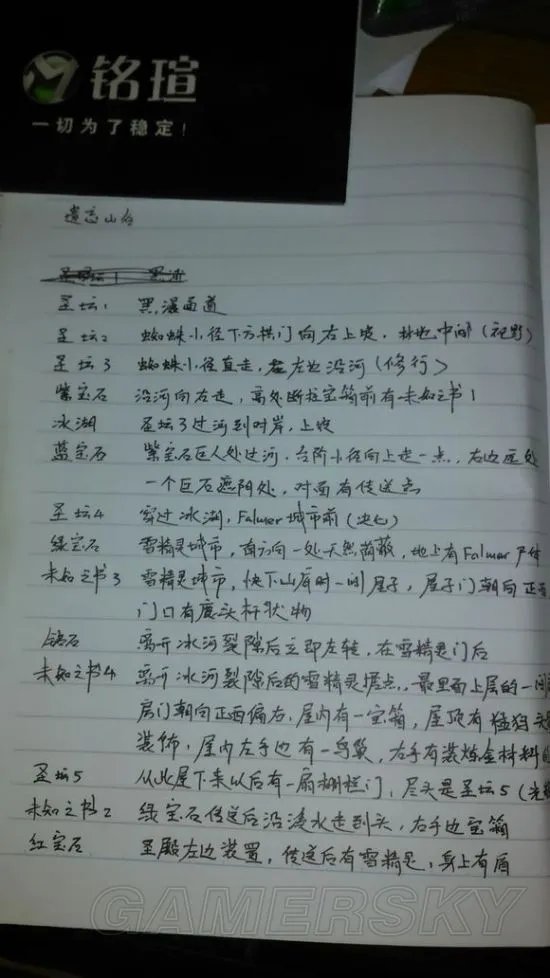 铭瑄
一切为了稳定!
遗忘山谷
圣坛1 黑漫通道
圣坛2 蜘蛛小径下方拱门向右上坡,林地中间(视野)
圣坛3 蜘蛛小径直走,左边沿河(修行)
紫宝石 沿河向右走,高处断拉宝箱前有未知之书1
冰湖 圣坛3过河到对岸,上坡
蓝宝石 紫宝石巨人处过河,台阶小径向上走一点,右边远处
一个巨石遮阴处,对面有传送点
圣坛4 穿过冰湖,Falmer城市前(决心)
绿宝石 雪精灵城市,南方向一处天然荫蔽,地上有Falmer尸体
未知之书3 雪精灵城市,快下山崖时一间屋子,屋子门朝向正西
门口有鹿头杆状物
钻石 离开冰河裂隙后立即左转,在雪精灵门后
未知之书4 离开冰河裂隙后的雪精灵据点,最里面上层的一间
房门朝向正西偏右,屋内有一宝箱,屋顶有猛犸头
装饰,屋内左手边有一鸟巢,右手有装炼金材料的
圣坛5 从此屋下来以后有一扇栅栏门,尽头是圣坛5(光
未知之书2 绿宝石传送后沿流水走到头,右手边宝箱
红宝石 圣殿左边装置,传送后有雪精灵,身上有盾
GAMERSKY